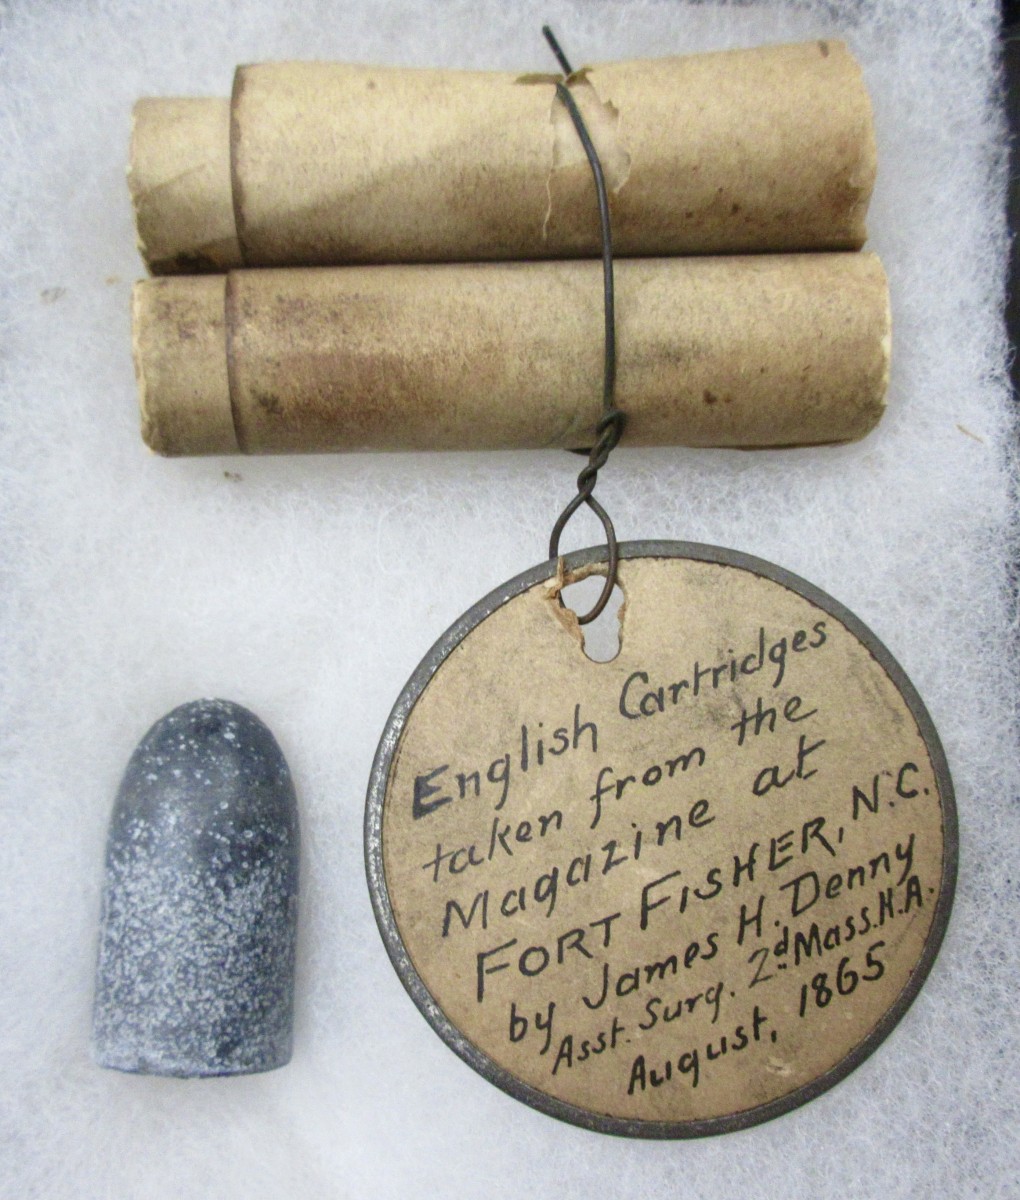 English Cartridges
taken from the
Magazine at
FORT FISHER, N.C.
by James H. Denny
Asst. Surg. 2d Mass. H.A.
August, 1865